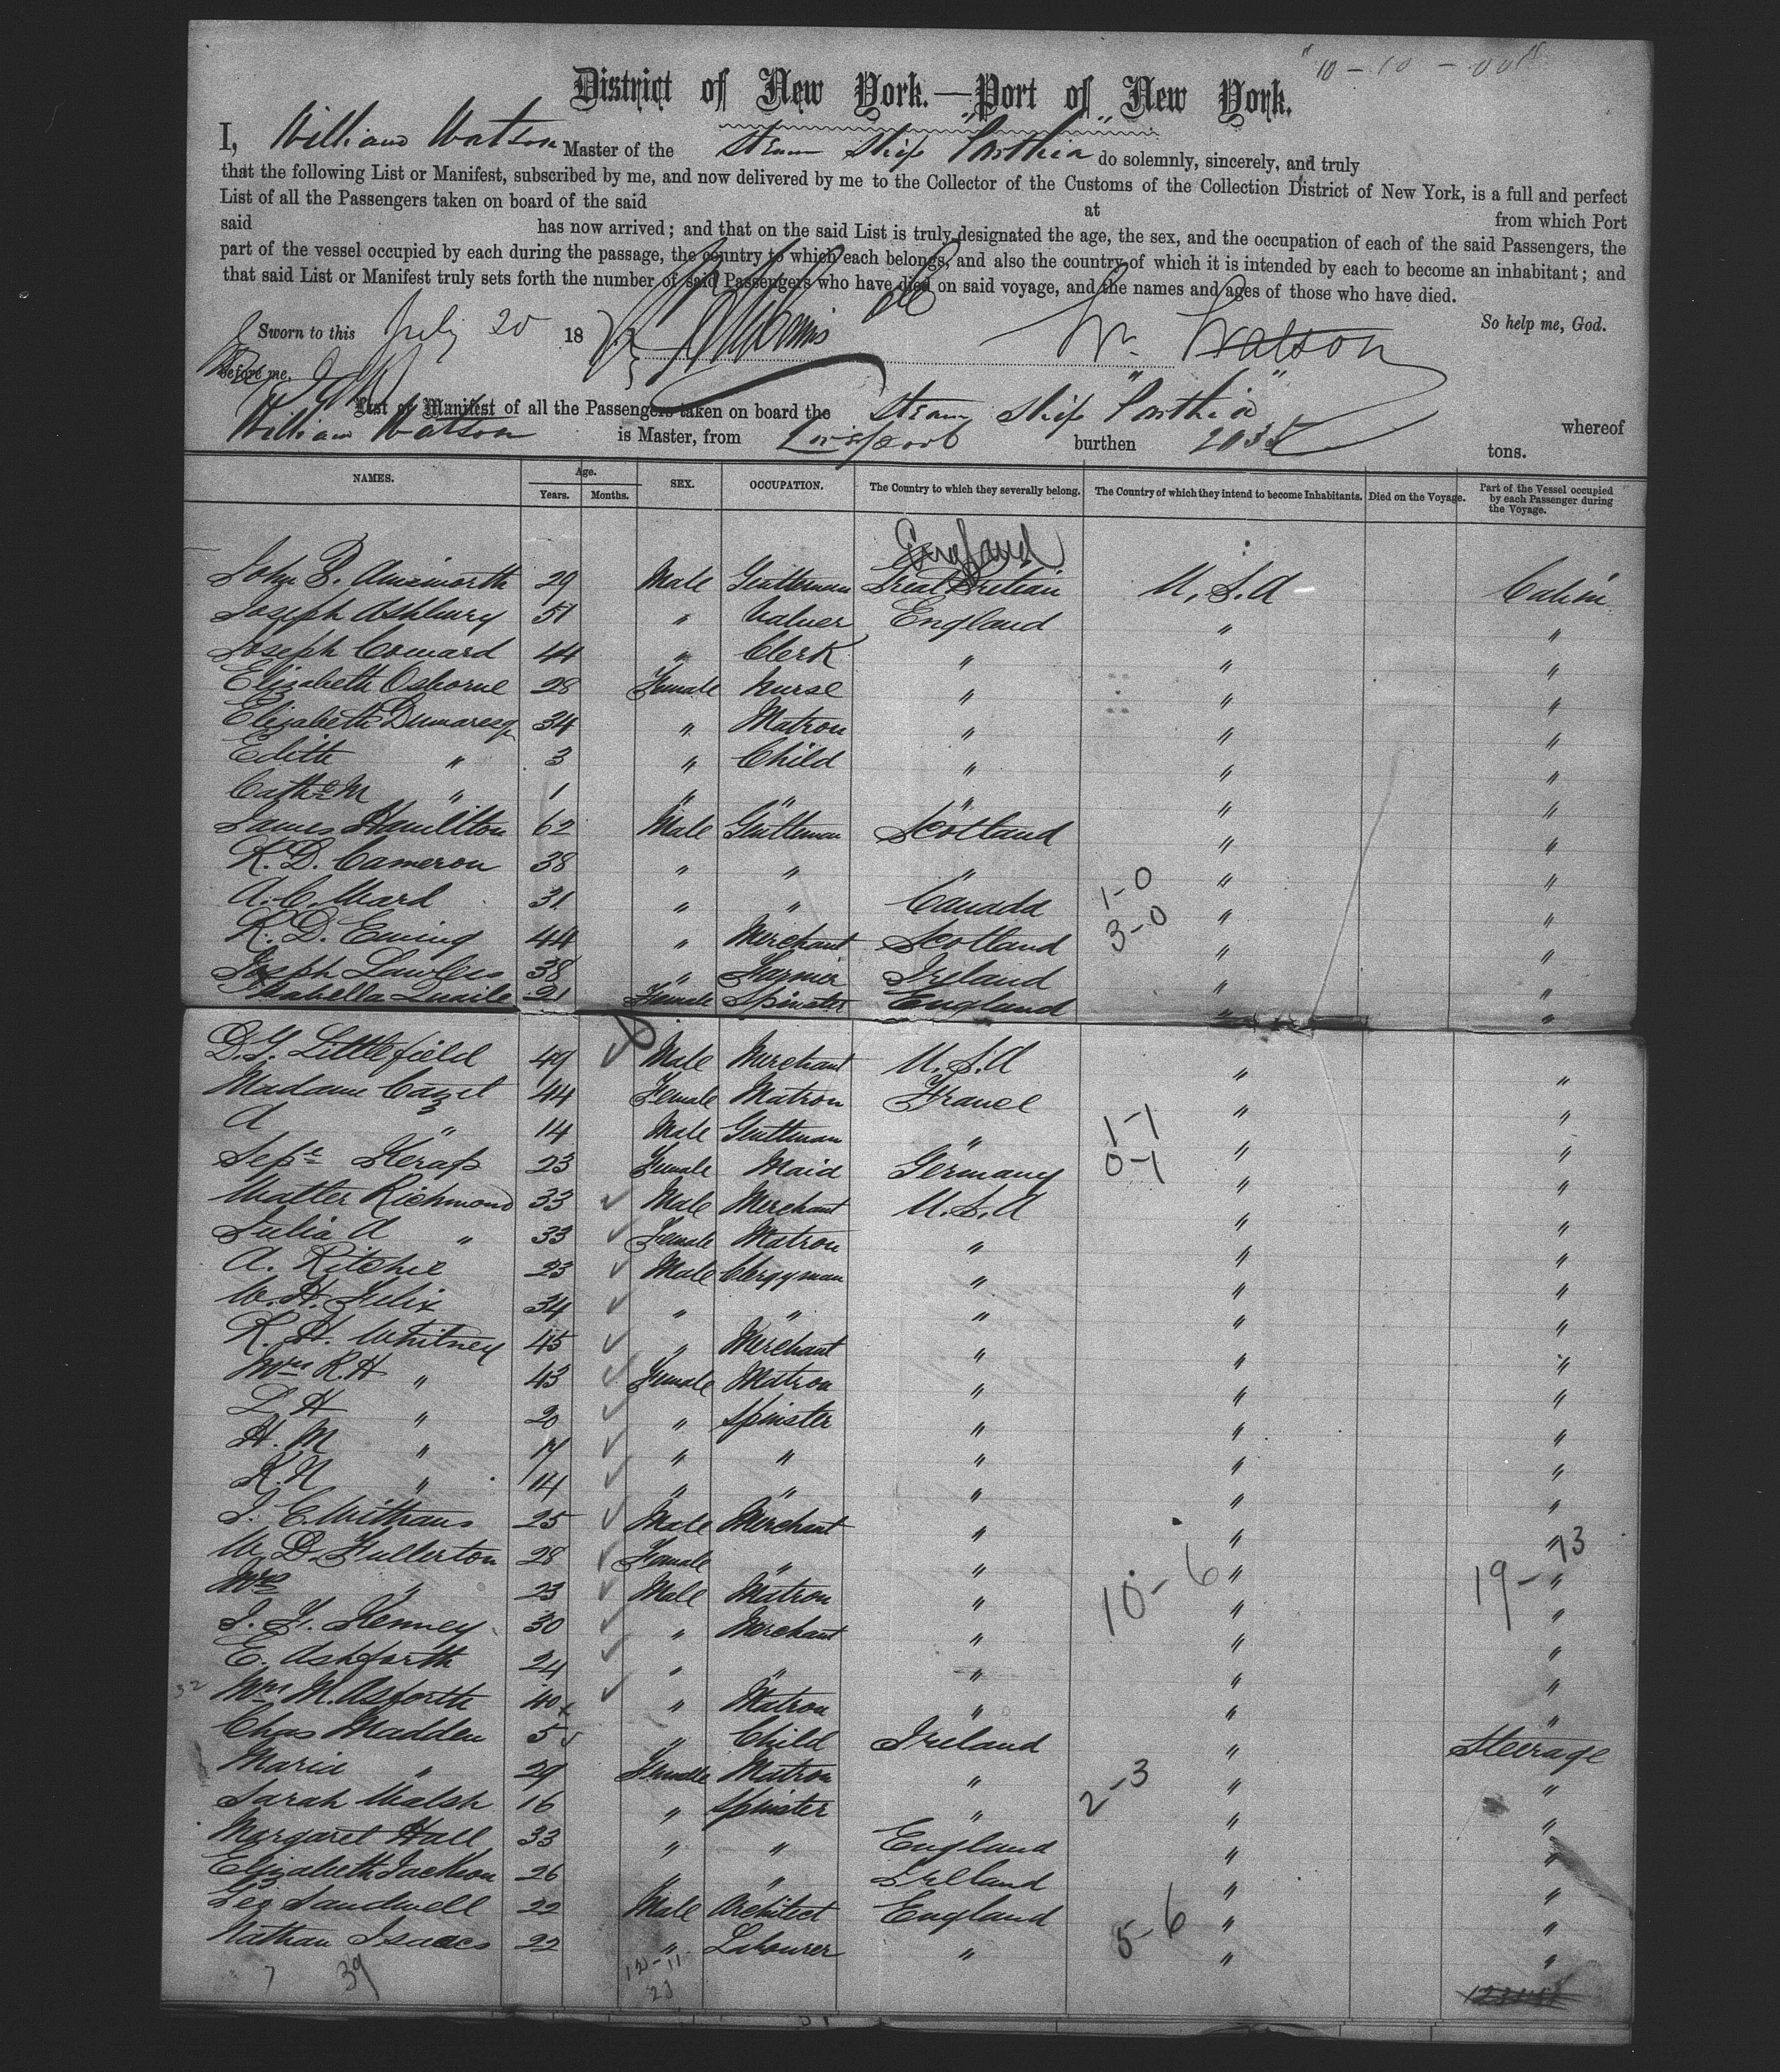 "10 - 10 -
District of New York.—Port of New York.
I, William Watson Master of the Steam Ship "Parthia" do solemnly, sincerely, and truly
that the following List or Manifest, subscribed by me, and now delivered by me to the Collector of the Customs of the Collection District of New York, is a full and perfect
List of all the Passengers taken on board of the said at from which Port
said has now arrived; and that on the said List is truly designated the age, the sex, and the occupation of each of the said Passengers, the
part of the vessel occupied by each during the passage, the country to which each belongs, and also the country of which it is intended by each to become an inhabitant; and
that said List or Manifest truly sets forth the number of said Passengers who have died on said voyage, and the names and ages of those who have died.
So help me, God.
Sworn to this July 20 18 Wm. Watson
before me,
List or Manifest of all the Passengers taken on board the Steam Ship "Parthia" whereof
William Watson is Master, from Liverpool burthen 2035 tons.
NAMES. Age. Years. Months. SEX. OCCUPATION. The Country to which they severally belong. The Country of which they intend to become Inhabitants. Died on the Voyage. Part of the Vessel occupied by each Passenger during the Voyage.
England
John B. Ainsworth 29 Male Gentleman Great Britian U.S.A Cabin
Joseph Ashbury 51 " Valuer England " "
Joseph Coward 44 " Clerk " " "
Elizabeth Osborne 28 Female Nurse " " "
Elizabeth Dumaresq 34 " Matron " " "
Edith " 3 " Child " " "
Cathe M " 1 " " " " "
James Hamillton 62 Male Gentleman Scotland " "
R. D. Cameron 38 " " " " "
A. C. Ward 31 " " Canada 1-0 " "
R. D. Ewing 44 " Merchant Scotland 3-0 " "
Joseph Lawless 38 " Farmer Ireland " "
Isabella Quaile 21 Female Spinster England " "
D. G. Littlefield 49 Male Merchant U.S.A " "
Madame Cazet 44 Female Matron France " "
A " 14 Male Gentleman " 1-1 " "
Sepe Kerap 23 Female Maid Germany 0-1 " "
Walter Richmond 33 Male Merchant U.S.A " "
Julia A " 33 Female Matron " " "
A. Ritchie 23 Male Clergyman " " "
W. H. Felix 34 " " " " "
R. H. Whitney 45 " Merchant " " "
Mrs R.H " 43 Female Matron " " "
L H " 20 " Spinster " " "
H. M " 17 " " " " "
K. N " 14 " " " " "
J. C. Withans 25 Male Merchant " " "
W. D. Fullerton 28 Female " " 10-6 " 19-13 "
Mrs " 23 Male Matron " " "
J. F. Kenney 30 " Merchant " " "
E. Ashforth 24 " " " " "
32 Mrs M. Asforth 40 " Matron " " "
Chas Madden 5 " Child Ireland " Steerage
Maria " 29 Female Matron " 2-3 " "
Sarah Walsh 16 " Spinster " " "
Margaret Hall 33 " " England " "
Elizabeth Jackson 26 " " Ireland " "
Geo Sandwell 22 Male Architect England " "
Nathan Isaacs 22 " Labourer " 5-6 " "
7 39 12-11
23